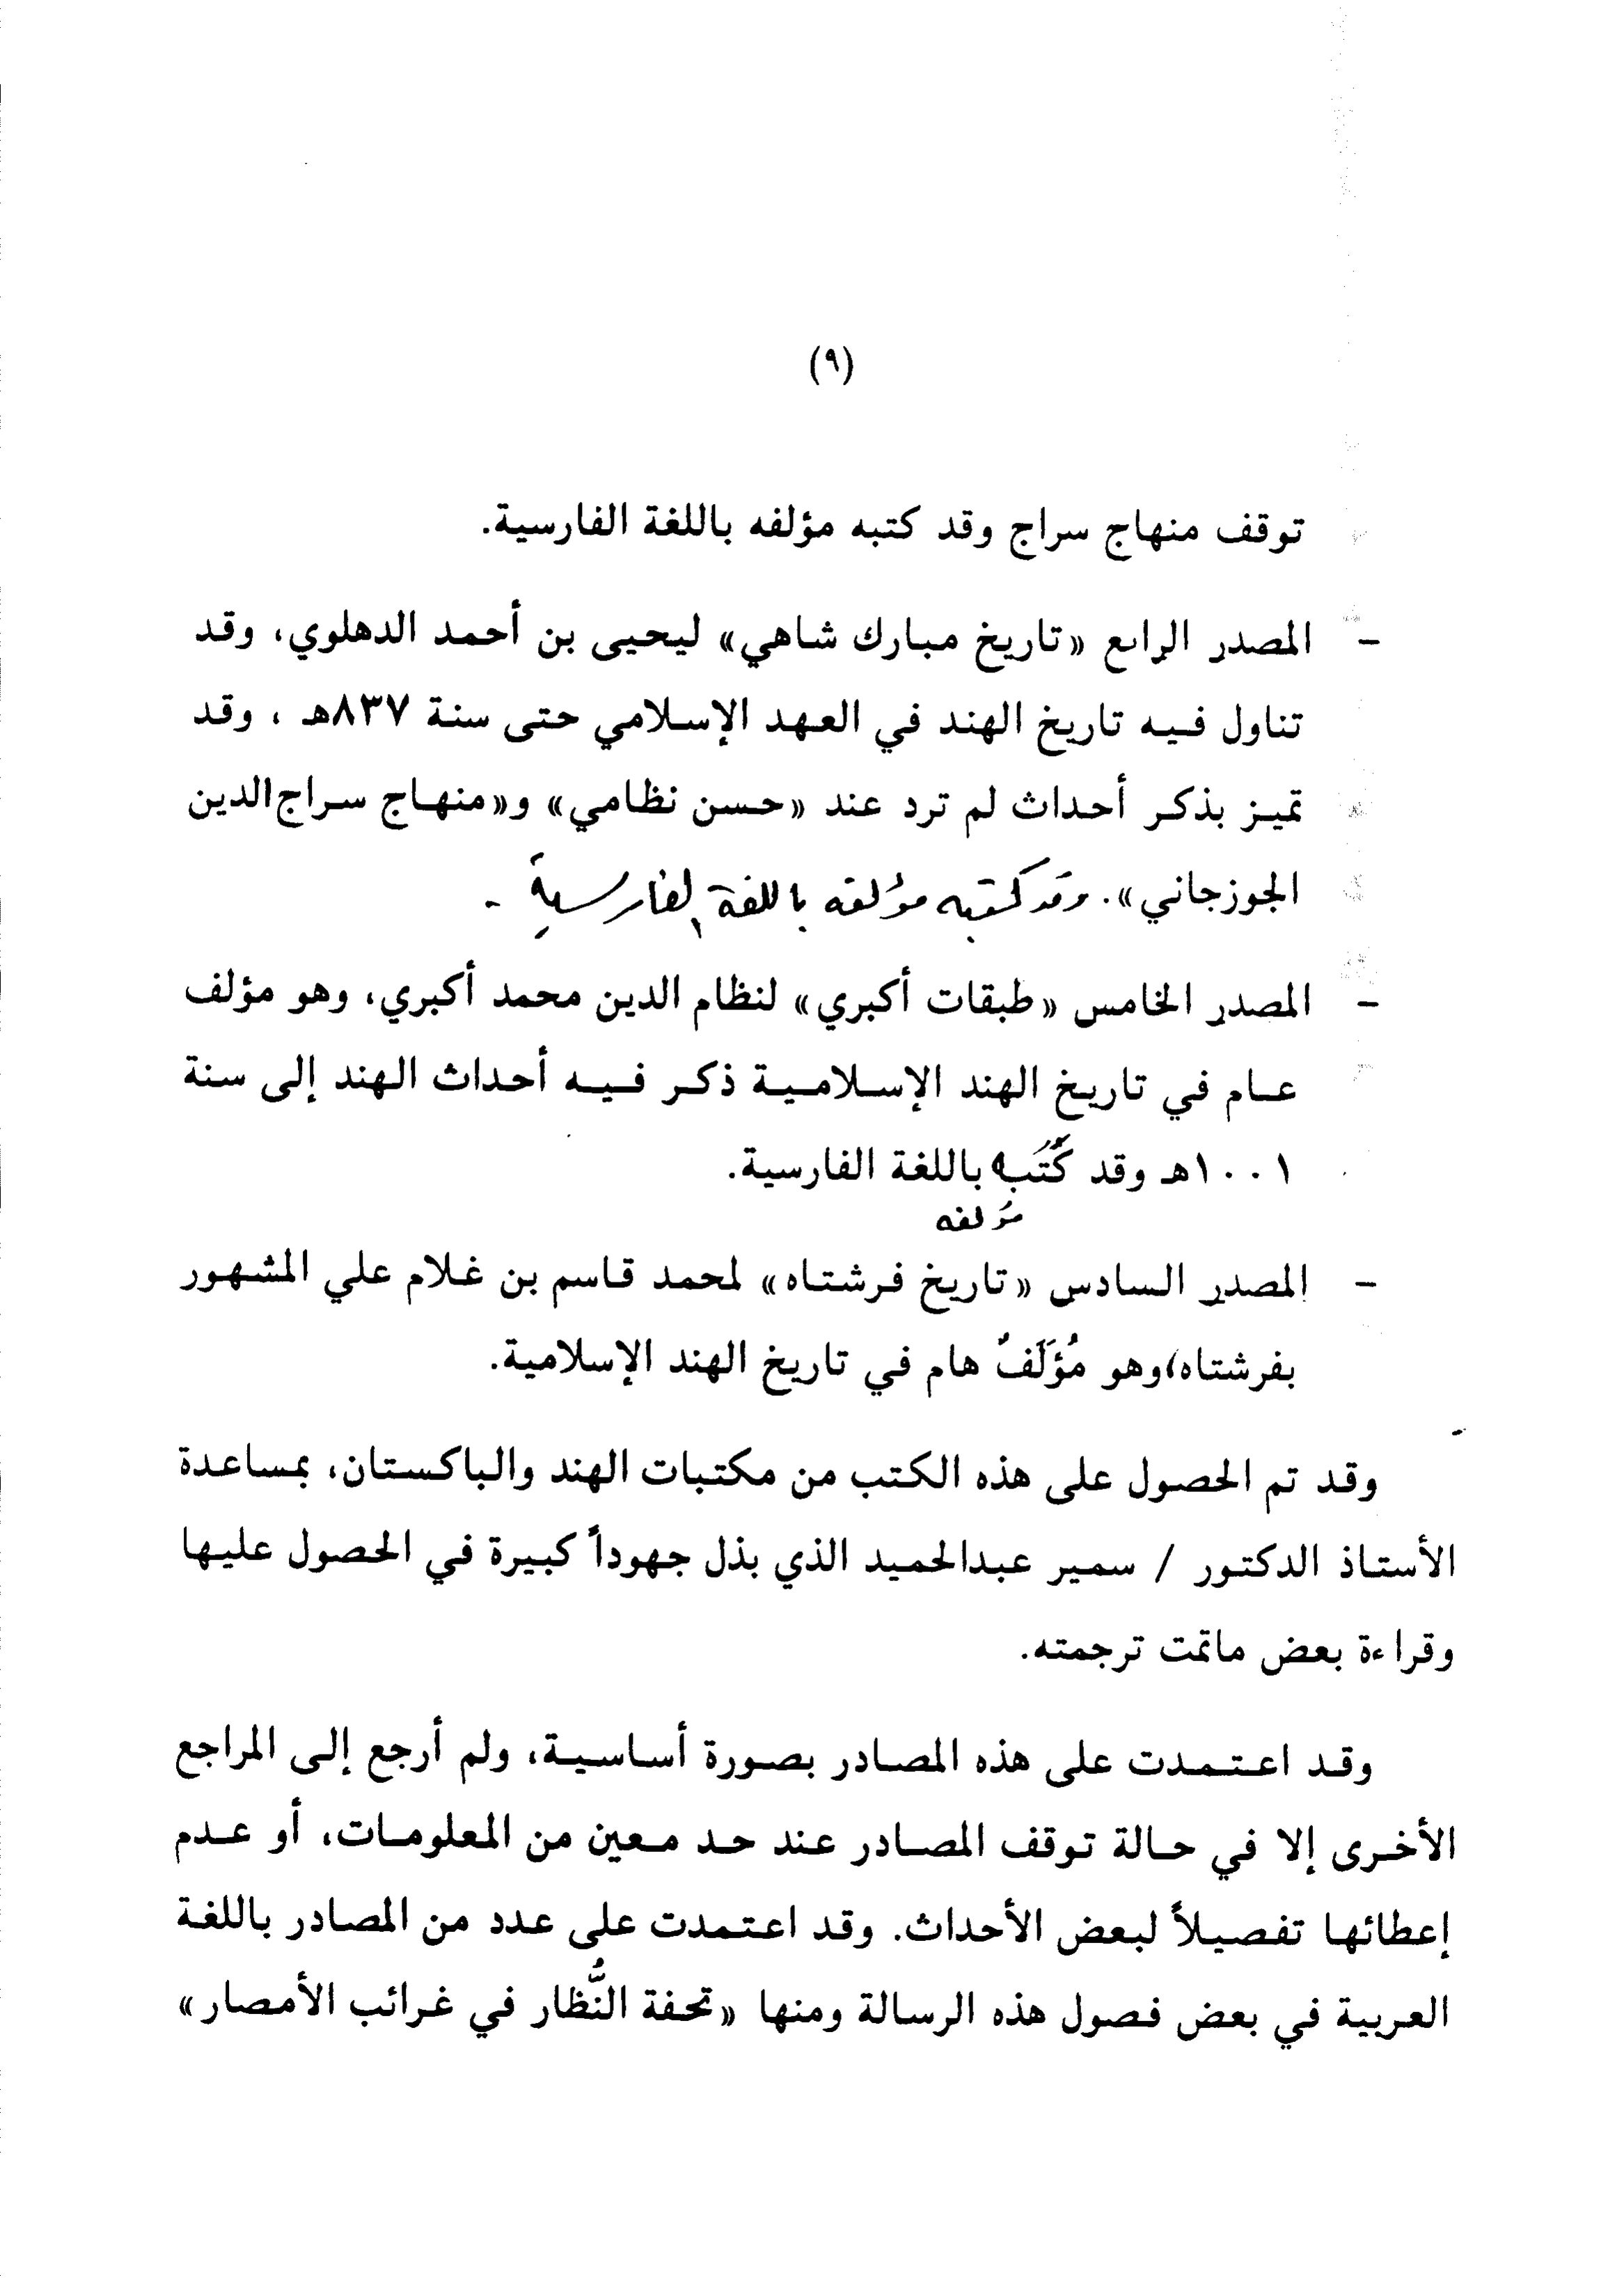 (٩)
توقف منهاج سراج وقد كتبه مؤلفه باللغة الفارسية.
- المصدر الرابع «تاريخ مبارك شاهي» ليحيى بن أحمد الدهلوي، وقد
تناول فيه تاريخ الهند في العهد الإسلامي حتى سنة ٨٣٧هـ ، وقد
تميز بذكر أحداث لم ترد عند «حسن نظامي» و«منهاج سراج الدين
الجوزجاني». وقد كتبه مؤلفه باللغة الفارسية -
- المصدر الخامس «طبقات أكبري» لنظام الدين محمد أكبري، وهو مؤلف
عام في تاريخ الهند الإسلامية ذكر فيه أحداث الهند إلى سنة
١٠٠١هـ وقد كَتَبه باللغة الفارسية.
مؤلفه
- المصدر السادس «تاريخ فرشتاه» لمحمد قاسم بن غلام علي المشهور
بفرشتاه، وهو مُؤَلَفٌ هام في تاريخ الهند الإسلامية.
وقد تم الحصول على هذه الكتب من مكتبات الهند والباكستان، بمساعدة
الأستاذ الدكتور / سمير عبدالحميد الذي بذل جهوداً كبيرة في الحصول عليها
وقراءة بعض ماتمت ترجمته.
وقد اعتمدت على هذه المصادر بصورة أساسية، ولم أرجع إلى المراجع
الأخرى إلا في حالة توقف المصادر عند حد معين من المعلومات، أو عدم
إعطائها تفصيلاً لبعض الأحداث. وقد اعتمدت على عدد من المصادر باللغة
العربية في بعض فصول هذه الرسالة ومنها «تحفة النُّظار في غرائب الأمصار»